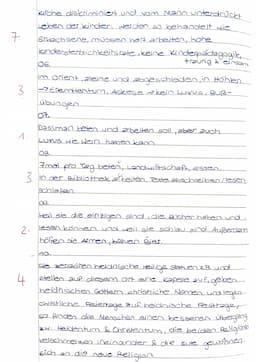 Kirche diskriminiert und vom Mann unterdrückt
Leben der Kinder: werden so behandelt wie
7 Erwachsene, müssen hart arbeiten, hohe
Kindersterblichkeitsrate, keine Kinderpädagogik,
traurig & einsam
06.
Im Orient, alleine und abgeschieden, in Höhlen
3 → Eremitentum, Askese → kein Luxus, Buß-
übungen
07.
1 Dass man beten und arbeiten soll, aber auch
Luxus wie Wein haben kann
08.
7 mal pro Tag beten, Landwirtschaft, essen,
3 in der Bibliothek arbeiten, Texte abschreiben/lesen
schlafen
09.
Weil sie die einzigen sind, die Bücher haben und
2. lesen können und weil sie schlau sind. Außerdem
helfen sie Armen, Bier
10.
Sie zerstören heidnische heilige Stätten z.B. und
4 stellen auf diesem Ort eine Kapelle auf, geben
heidnischen Göttern christliche Namen und legen
christliche Feiertage auf heidnische Festtage,
so finden die Menschen einen besseren Übergang
zw. Heidentum & Christentum, die beiden Religionen
verschmelzen ineinander & die gewöhnen
sich an die neue Religion.